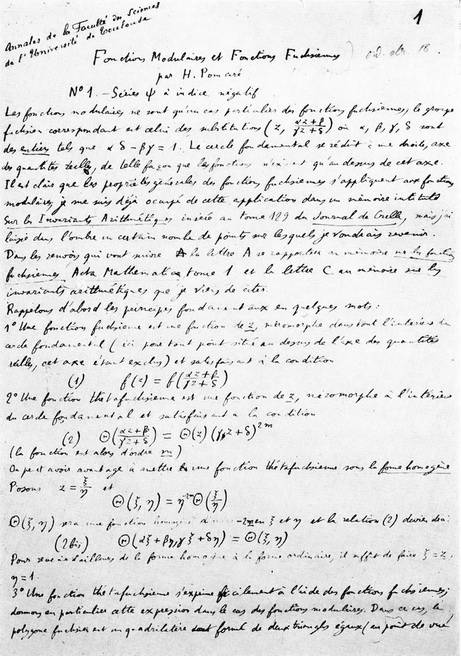 Annales de la Faculté des Sciences
de l'Université de Toulouse
1
Fonctions Modulaires et Fonctions Fuchsiennes
par H. Poincaré
N° 1. – Séries ψ à indice négatif
Les fonctions modulaires ne sont qu'un cas particulier des fonctions fuchsiennes, le groupe
fuchsien correspondant est celui des substitutions (z, αz+β/γz+δ) où α, β, γ, δ sont
des entiers tels que αδ-βγ=1. Le cercle fondamental se réduit à une droite, axe
des quantités réelles, de telle façon que les fonctions n'existent qu'au dessus de cet axe.
Il est clair que les propriétés générales des fonctions fuchsiennes s'appliquent aux fonctions
modulaires, je me suis déjà occupé de cette application dans un mémoire intitulé
Sur les Invariants Arithmétiques inséré au tome 129 du Journal de Crelle, mais j'ai
laissé dans l'ombre un certain nombre de points sur lesquels je voudrais revenir.
Dans les renvois qui vont suivre la lettre A se rapportera au mémoire sur les fonctions
fuchsiennes, Acta Mathematica tome 1 et la lettre C au mémoire sur les
invariants arithmétiques que je viens de citer.
Rappelons d'abord les principes fondamentaux en quelques mots:
1° Une fonction fuchsienne est une fonction de z, méromorphe dans tout l'intérieur du
cercle fondamental (ici pour tout point situé au dessus de l'axe des quantités
réelles, cet axe étant exclus) et satisfaisant à la condition
(1) f(z) = f(αz+β/γz+δ)
2° Une fonction thétafuchsienne est une fonction de z, méromorphe à l'intérieur
du cercle fondamental et satisfaisant a la condition
(2) Θ(αz+β/γz+δ) = Θ(z) (γz+δ)^2m
(la fonction est alors d'ordre m)
On peut avoir avantage à mettre une fonction thétafuchsienne sous la forme homogène
Posons z = ξ/η et
Θ(ξ, η) = η^-2m Θ(ξ/η)
Θ(ξ, η) sera une fonction homogène d'ordre -2m en ξ et η et la relation (2) deviendra:
(2 bis) Θ(αξ+βη, γξ+δη) = Θ(ξ, η)
Pour revenir d'ailleurs de la forme homogène à la forme ordinaire, il suffit de faire ξ = z,
η = 1.
3° Une fonction thétafuchsienne s'exprime facilement à l'aide des fonctions fuchsiennes;
donnons en particulier cette expression dans le cas des fonctions modulaires. Dans ce cas, le
polygone fuchsien est un quadrilatère formé de deux triangles égaux (au point de vue